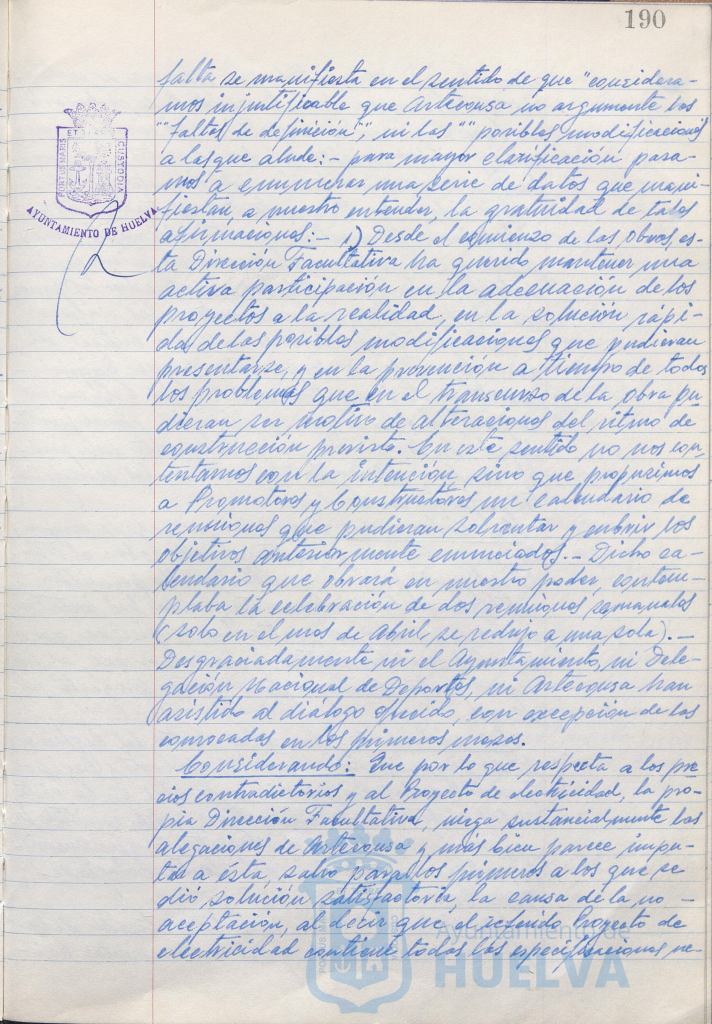 190
falta se manifiesta en el sentido de que "considera-
mos injustificable que Artecousa no argumente las
""faltas de definición"", ni las ""posibles modificaciones
a las que alude:- para mayor clarificación pasa-
mos a enumerar una serie de datos que mani-
fiestan, a nuestro entender, la gratuidad de tales
afirmaciones:- 1) Desde el comienzo de las obras, es-
ta Dirección Facultativa ha querido mantener una
activa participación en la adecuación de los
proyectos a la realidad, en la solución rápi-
da de las posibles modificaciones que pudieran
presentarse, y en la prevención a tiempo de todos
los problemas que en el transcurso de la obra pu-
dieran ser motivo de alteraciones del ritmo de
construcción previsto. En este sentido no nos con-
tentamos con la intención sino que propusimos
a Promotores y Constructores un calendario de
reuniones que pudieran solventar y cubrir los
objetivos anteriormente enunciados.- Dicho ca-
lendario que obrará en nuestro poder, contem-
plaba la celebración de dos reuniones semanales
(solo en el mes de Abril, se redujo a una sola).-
Desgraciadamente ni el Ayuntamiento, ni Dele-
gación Nacional de Deportes, ni Artecousa han
asistido al diálogo ofrecido, con excepción de las
convocadas en los primeros meses.
Considerando: Que por lo que respecta a los pre
cios contradictorios y al Proyecto de electricidad, la pro-
pia Dirección Facultativa, niega sustancialmente las
alegaciones de Artecousa y más bien parece impu-
tar a ésta, salvo para los primeros a los que se
dió solución satisfactoria, la causa de la no-
aceptación, al decir que el referido Proyecto de
electricidad contiene todas las especificaciones ne-
PORTUS MARIS ET TERRAE CUSTODIA
AYUNTAMIENTO DE HUELVA
Ayuntamiento de
HUELVA